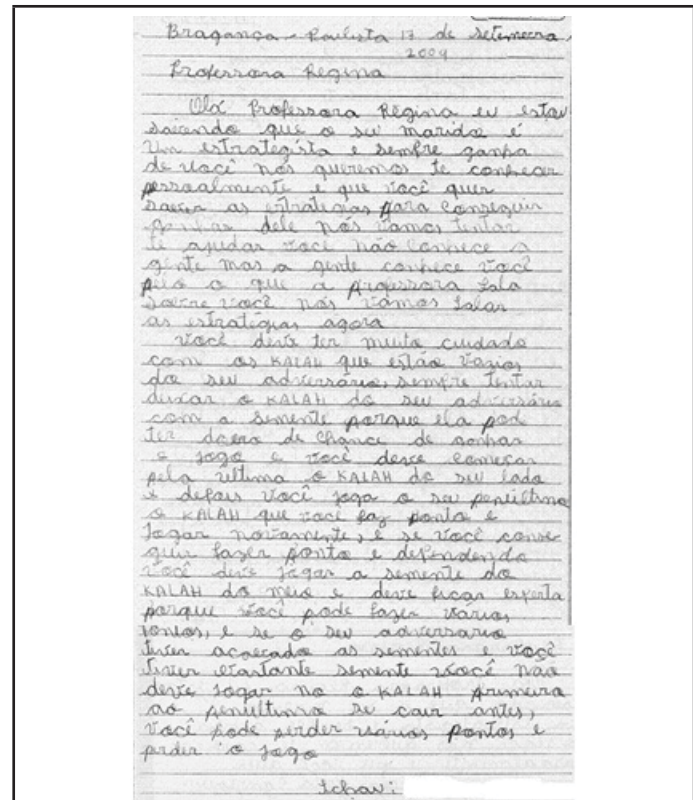 Bragança - Paulista 17 de setembro,
2009
Professora Regina
Olá Professora Regina eu estou
sabendo que o seu marido é
um estrategista e sempre ganha
de você nós queremos te conhecer
pessoalmente e que você quer
saber as estratégias para conseguir
ganhar dele nós vamos tentar
te ajudar você não conhece a
gente mas a gente conhece você
pelo o que a professora fala
sobre você nós vamos falar
as estratégias agora
você deve ter muito cuidado
com os KALAH que estão vazios
do seu adversário, sempre tentar
deixar o KALAH do seu adversário
com a semente porque ela pod
ter de chance de ganhar
o jogo e você deve começar
pela última o KALAH do seu lado
e depois você joga o seu penúltimo
o KALAH que você faz ponto e
jogar novamente, e se você conse
guir fazer ponto e dependendo
você deve jogar a semente do
KALAH do meio e deve ficar esperta
porque você pode fazer vários,
pontos, e se o seu adversario
tiver acabado as sementes e você
tiver bastante semente você não
deve jogar no o KALAH primeiro
ao penúltimo se cair antes,
você pode perder vários pontos e
perder o jogo
Tchau: